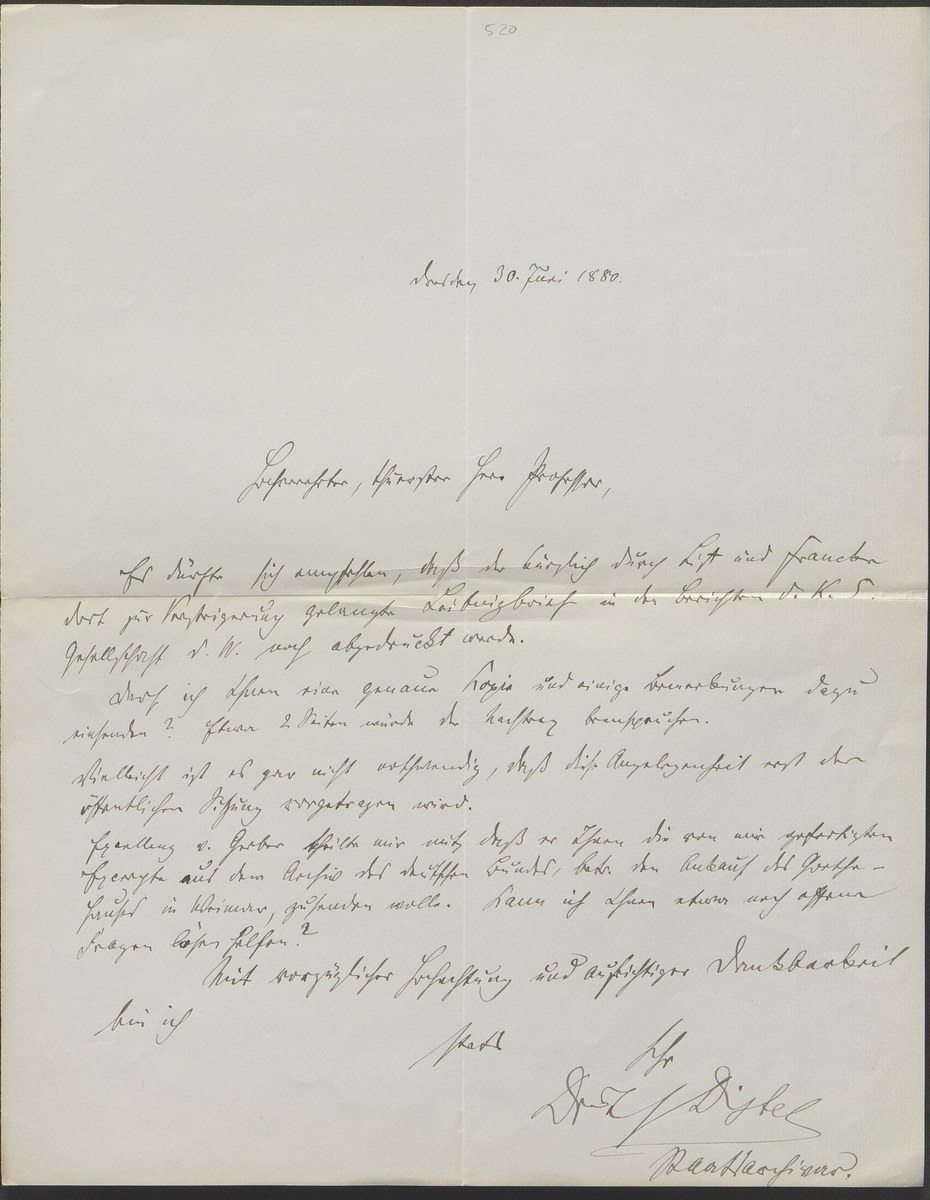 520
Dresden, 30. Juni 1880.
Hochverehrter, theuerster Herr Professor,
Es dürfte sich empfehlen, daß der kürzlich durch List und Francke
dort zur Versteigerung gelangte Leibnizbrief in den Berichten d. K. S.
Gesellschaft d. W. noch abgedruckt werde.
Darf ich Ihnen eine genaue Kopie und einige Bemerkungen dazu
einsenden? Etwa 2 Seiten würde der Nachtrag beanspruchen.
Vielleicht ist es gar nicht nothwendig, daß diese Angelegenheit erst der
öffentlichen Sitzung vorgetragen wird.
Excellenz v. Gerber theilte mir mit, daß er Ihnen die von mir gefertigten
Excerpte aus dem Archiv des deutschen Bundes, betr. den Ankauf des Goethe-
hauses in Weimar, zusenden wolle. Kann ich Ihnen etwa noch offene
Fragen lösen helfen?
Mit vorzüglicher Hochachtung und aufrichtiger Dankbarkeit
bin ich
stets
Ihr
Distel
Staatsarchivar.